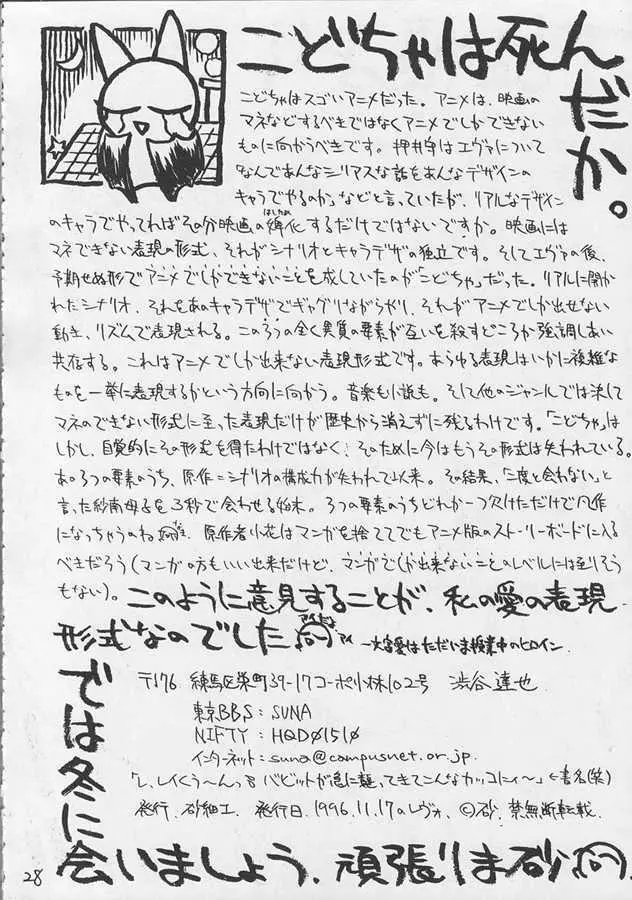 こどちゃは死んだか。
こどちゃはスゴいアニメだった。アニメは、映画の
マネなどするべきではなくアニメでしかできない
ものに向かうべきです。押井守はエヴァについて
「なんであんなシリアスな話をあんなデザインの
キャラでやるのか」などと言っていたが、リアルなデザイン
のキャラでやってればその分映画の婢化するだけではないですか。映画には
マネできない表現の形式、それがシナリオとキャラデザの独立です。そしてエヴァの後、
予期せぬ形でアニメでしかできないことを成していたのが「こどちゃ」だった。リアルに開か
れたシナリオ、それをあのキャラデザでギャグりながらやり、それがアニメでしか出せない
動き、リズムで表現される。この3つの全く異質の要素が互いを殺すどころか強調しあい
共存する。これはアニメでしか出来ない表現形式です。あらゆる表現はいかに複雑な
ものを一挙に表現するかという方向に向かう。音楽も小説も。そして他のジャンルでは決して
マネのできない形式に至った表現だけが歴史から消えずに残るわけです。「こどちゃ」は
しかし、自覚的にその形式を得たわけではなく、そのために今はもうその形式は失われている。
あの3つの要素のうち、原作=シナリオの構成力が失われて以来。その結果、「二度と会わない」と
言った紗南母子を3秒で会わせる始末。3つの要素のうちどれか一つ欠けただけで凡作
になっちゃうのね 原作者小花はマンガを捨ててでもアニメ版のストーリーボードに入る
べきだろう(マンガの方もいい出来だけど、マンガでしか出来ないことのレベルには至りそう
もない)。このように意見することが、私の愛の表現
形式なのでした アイ 一大宮愛はただいま授業中のヒロイン
〒176 練馬区栄町39-17コーポ小林102号 渋谷達也
東京BBS: SUNA
NIFTY: HQD01510
インターネット: suna@campusnet.or.jp
「レ、レイくう〜んっ8 バビットが急に襲ってきてこんなカッコにィ〜」←書名(笑)
発行、砂細工、発行日、1996.11.17のレヴォ、©砂、禁無断転載、
では冬に
会いましょう、頑張りま砂
28